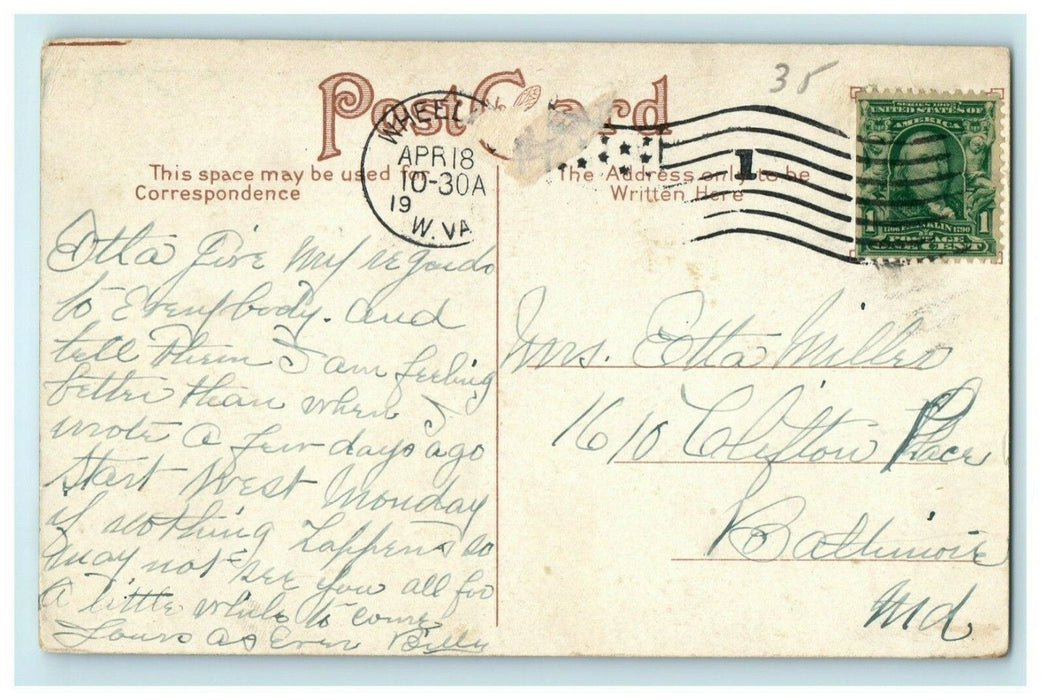 35
Post Card
WHEEL
APR 18
10-30A
19
W. VA
1
SERIES 1902
UNITED STATES OF
AMERICA
1 1
1706 FRANKLIN 1790
POSTAGE
ONE CENT
This space may be used for
Correspondence
The Address only to be
Written Here
Etta Give my regards
to Everybody. and
tell Them I am feeling
better than when I
wrote a few days ago
Start West Monday
if nothing happens so
may not see you all for
a little while to come
Yours as Ever Billy
Mrs. Etta Miller
1610 Clifton Place
Baltimore
Md